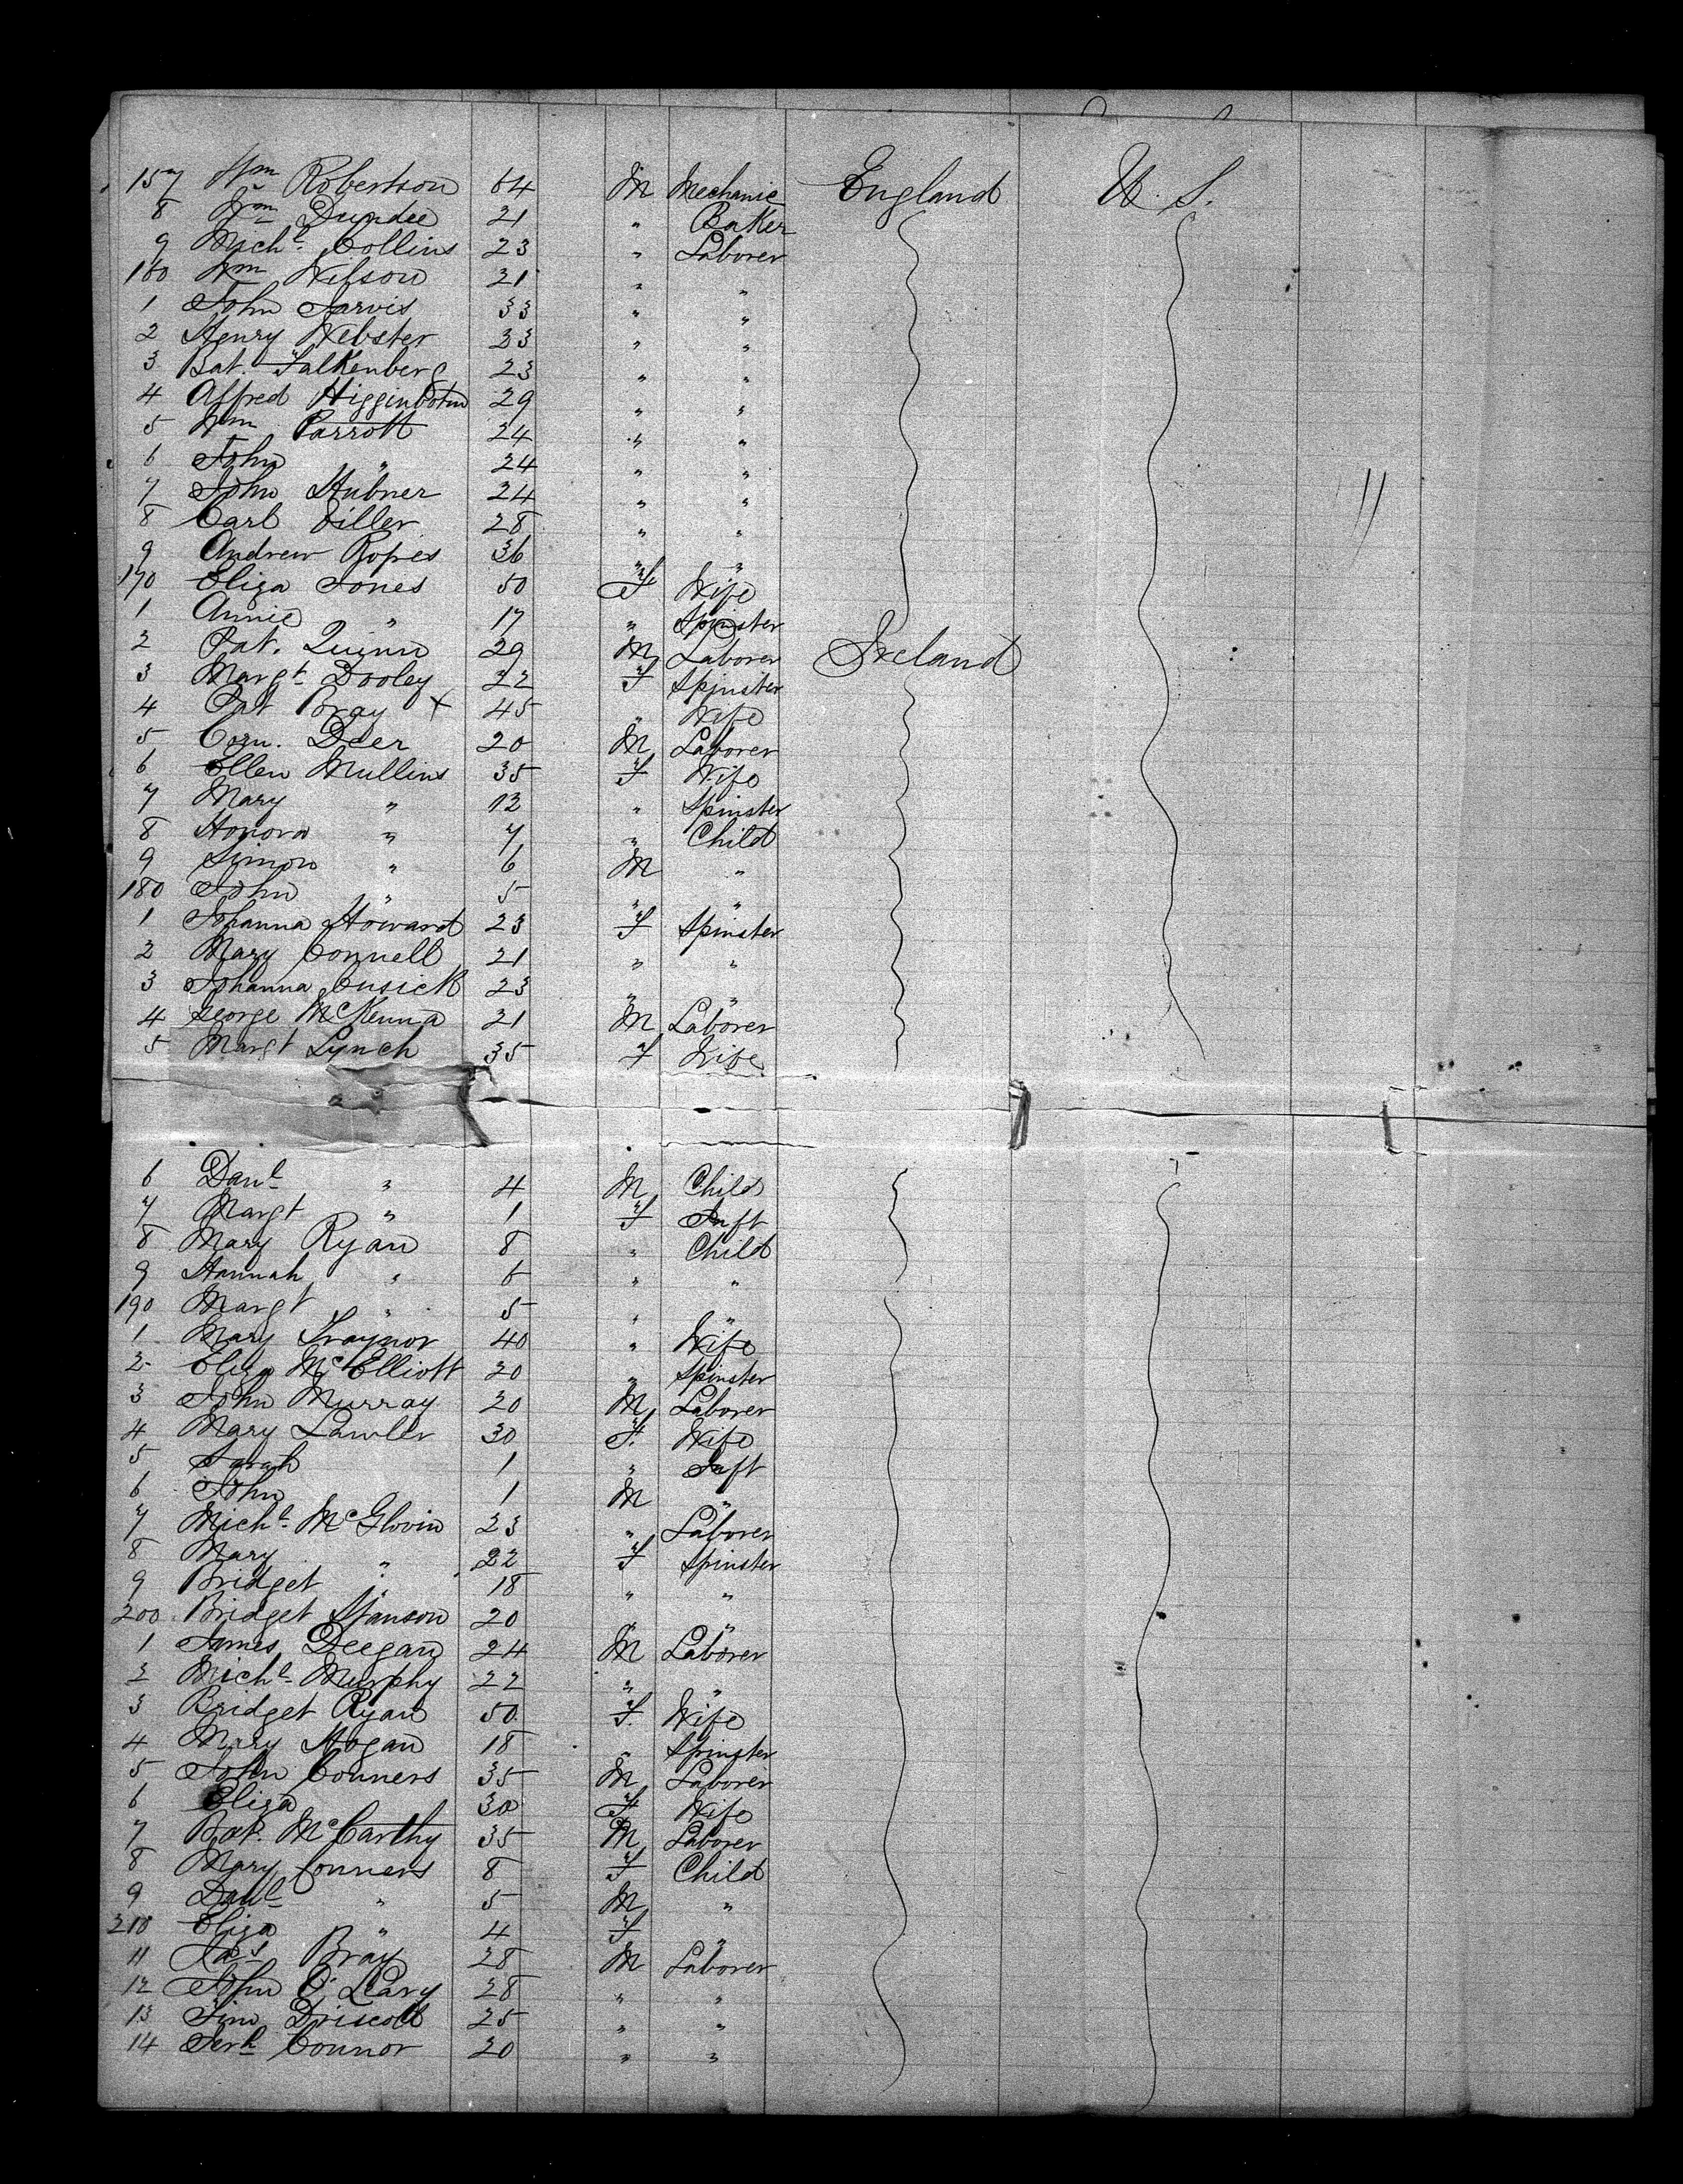 157 Wm Robertson 64 M Mechanic England U. S.
8 Wm Dundee 21 " Baker
9 Michl Collins 23 " Laborer
160 Wm Wilson 21 " "
1 John Jarvis 33 " "
2 Henry Webster 33 " "
3 Bat. Falkenberg 23 " "
4 Alfred Higginbotm 29 " "
5 Wm Parrott 24 " "
6 John " 24 " "
7 John Hubner 24 " "
8 Carl 28 " "
9 Andrew 36 " "
170 Eliza Jones 50 F Wife
1 Annie " 17 " Spinster
2 Pat. Quinn 29 M Laborer Ireland
3 Margt Dooley 22 F Spinster
4 Pat Bray X 45 " Wife
5 Corn. Deer 20 M Laborer
6 Ellen Mullins 35 F Wife
7 Mary " 12 " Spinster
8 Honora " 7 " Child
9 Simon " 6 M "
180 John " 5 " "
1 Johanna Howard 23 F Spinster
2 Mary Connell 21 " "
3 Johanna Cusick 23 " "
4 George McKenna 21 M Laborer
5 Margt Lynch 35 F Wife
6 Danl " 4 M Child
7 Margt " 1 F Inft
8 Mary Ryan 8 " Child
9 Hannah " 6 " "
190 Margt " 5 " "
1 Mary Traynor 40 " Wife
2 Eliza McElliott 20 " Spinster
3 John Murray 20 M Laborer
4 Mary Lawler 30 F. Wife
5 Sarah 1 " Inft
6 John 1 M "
7 Michl McGlovin 23 " Laborer
8 Mary " 22 F Spinster
9 Bridget " 18 " "
200 Bridget 20 " "
1 James Deegan 24 M Laborer
2 Michl Murphy 22 " "
3 Bridget Ryan 50 F. Wife
4 Mary Hogan 18 " Spinster
5 John Conners 35 M Laborer
6 Eliza 30 F Wife
7 Pat. McCarthy 35 M Laborer
8 Mary Conners 8 F Child
9 Danl " 5 M "
210 Eliza " 4 F "
11 Jas Bray 28 M Laborer
12 John O'Leary 28 " "
13 Tim Driscoll 25 " "
14 Connor 20 " "